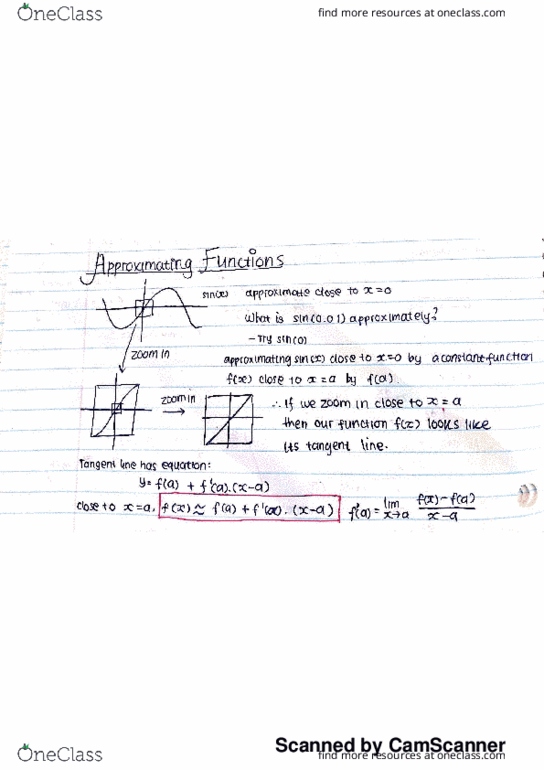 OneClass
find more resources at oneclass.com
Approximating Functions
sin(x) approximate close to x=0
What is sin(0.01) approximately?
- Try sin(0)
zoom in
approximating sin(x) close to x=0 by a constant function
f(x) close to x=a by f(a).
zoom in
∴ If we zoom in close to x=a
then our function f(x) looks like
its tangent line.
Tangent line has equation:
y= f(a) + f'(a).(x-a)
close to x=a, f(x) ≈ f(a) + f'(a). (x-a) f'(a) = lim x→a f(x)-f(a) / x-a
Scanned by CamScanner
OneClass
find more resources at oneclass.com